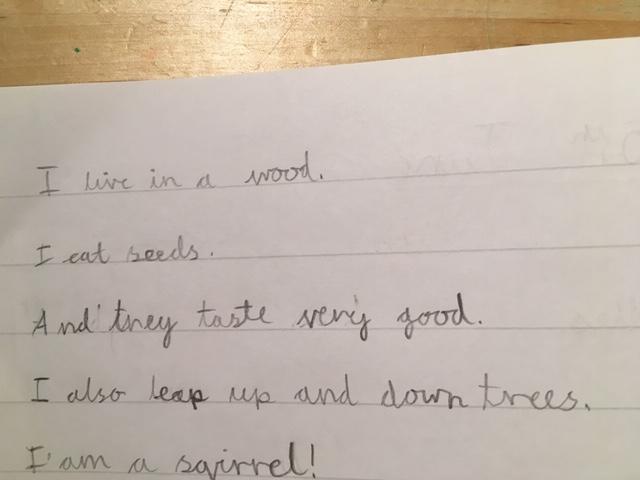 I live in a wood.
I eat seeds.
And they taste very good.
I also leap up and down trees.
I am a sqirrel!